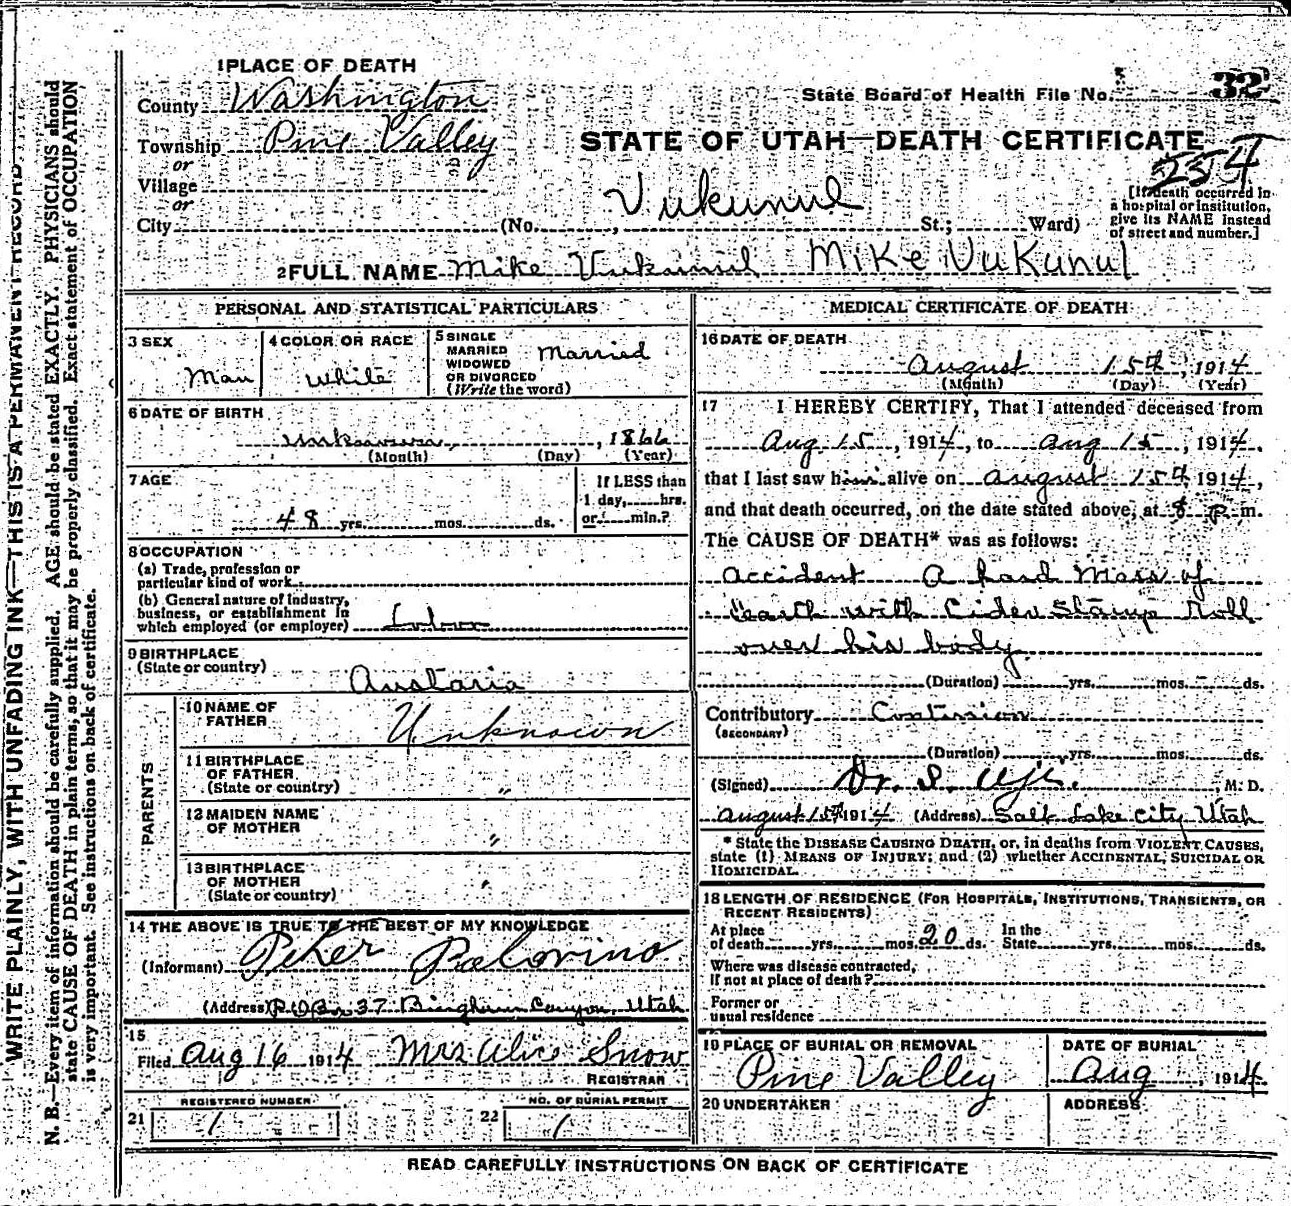 1 PLACE OF DEATH
County Washington
Township Pine Valley
or
Village
or
City (No. , St.; Ward)
State Board of Health File No. 32
STATE OF UTAH—DEATH CERTIFICATE
254
[If death occurred in a hospital or institution, give its NAME instead of street and number.]
Vukunul
2 FULL NAME Mike Vukunul Mike Vukunul
PERSONAL AND STATISTICAL PARTICULARS
3 SEX Man
4 COLOR OR RACE White
5 SINGLE MARRIED WIDOWED OR DIVORCED (Write the word) Married
6 DATE OF BIRTH
unknown, 1866
(Month) (Day) (Year)
7 AGE
48 yrs. mos. ds.
If LESS than 1 day, hrs. or min.?
8 OCCUPATION
(a) Trade, profession or particular kind of work
(b) General nature of industry, business, or establishment in which employed (or employer) Labor
9 BIRTHPLACE
(State or country) Austaria
PARENTS
10 NAME OF FATHER Unknown
11 BIRTHPLACE OF FATHER (State or country) "
12 MAIDEN NAME OF MOTHER "
13 BIRTHPLACE OF MOTHER (State or country) "
14 THE ABOVE IS TRUE TO THE BEST OF MY KNOWLEDGE
(Informant) Peter Polovino
(Address) P O Box 37 Bingham Canyon, Utah
15
Filed Aug 16 1914 Mrs Alice Snow
REGISTRAR
21 REGISTERED NUMBER 1
22 NO. OF BURIAL PERMIT 1
MEDICAL CERTIFICATE OF DEATH
16 DATE OF DEATH
August 15th, 1914
(Month) (Day) (Year)
17 I HEREBY CERTIFY, That I attended deceased from
Aug 15, 1914, to Aug 15, 1914,
that I last saw him alive on August 15th 1914,
and that death occurred, on the date stated above, at 8 P. m.
The CAUSE OF DEATH* was as follows:
Accident A hard Mass of
earth with Cider Stamp Roll
over his body
(Duration) yrs. mos. ds.
Contributory Contusion
(SECONDARY)
(Duration) yrs. mos. ds.
(Signed) Dr. S. , M. D.
August 15th 1914 (Address) Salt Lake City Utah
* State the DISEASE CAUSING DEATH, or, in deaths from VIOLENT CAUSES,
state (1) MEANS OF INJURY; and (2) whether ACCIDENTAL, SUICIDAL OR
HOMICIDAL.
18 LENGTH OF RESIDENCE (FOR HOSPITALS, INSTITUTIONS, TRANSIENTS, OR
RECENT RESIDENTS)
At place of death yrs. mos. 20 ds. In the State yrs. mos. ds.
Where was disease contracted,
if not at place of death?
Former or
usual residence
19 PLACE OF BURIAL OR REMOVAL
Pine Valley
DATE OF BURIAL
Aug , 1914
20 UNDERTAKER
ADDRESS
READ CAREFULLY INSTRUCTIONS ON BACK OF CERTIFICATE
WRITE PLAINLY, WITH UNFADING INK—THIS IS A PERMANENT RECORD
N. B.—Every item of information should be carefully supplied. AGE should be stated EXACTLY. PHYSICIANS should
state CAUSE OF DEATH in plain terms, so that it may be properly classified. Exact statement of OCCUPATION
is very important. See instructions on back of certificate.